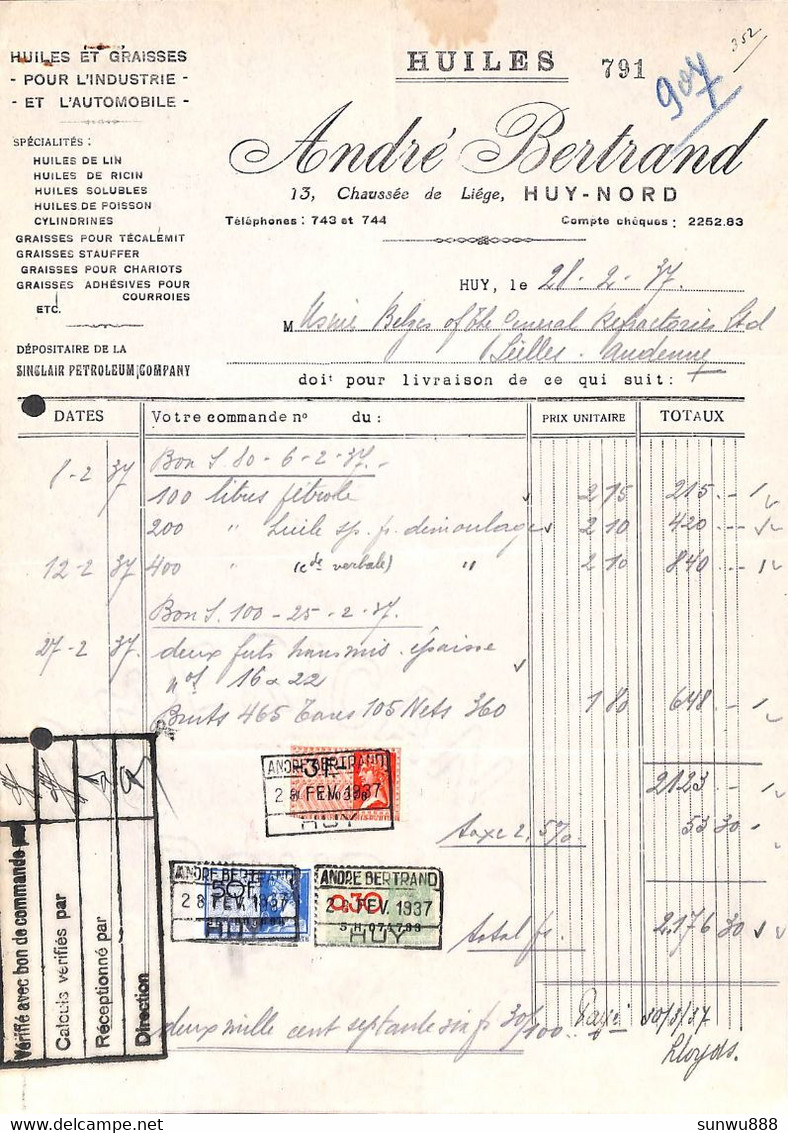 HUILES ET GRAISSES
- POUR L'INDUSTRIE -
- ET L'AUTOMOBILE -
SPÉCIALITÉS :
HUILES DE LIN
HUILES DE RICIN
HUILES SOLUBLES
HUILES DE POISSON
CYLINDRINES
GRAISSES POUR TÉCALÉMIT
GRAISSES STAUFFER
GRAISSES POUR CHARIOTS
GRAISSES ADHÉSIVES POUR COURROIES
ETC.
DÉPOSITAIRE DE LA
SINCLAIR PETROLEUM COMPANY
HUILES 791
907
352
André Bertrand
13, Chaussée de Liége, HUY-NORD
Téléphones : 743 et 744 Compte chèques : 2252.83
HUY, le 28-2-37.
M Usine Belges of the General Refractories Ltd
Seilles. Andenne
doit pour livraison de ce qui suit :
DATES Votre commande n° du : PRIX UNITAIRE TOTAUX
Bon S. 80-6-2-37.-
8-2 37 100 litres pétrole 2 15 215.-
200 " huile sp. pr. démoulage 2 10 420.-
12-2 37 400 " (cde verbale) " 2 10 840.-
Bon S. 100-25-2-37.
27-2 37. deux futs transmis. épaisse
nos 16 & 22
Bruts 465 Tares 105 Nets 360 1 80 648.-
2123.-
taxe 2,5% 53 30
total fr. 2.176 30
ANDRE BERTRAND
3 F
28 FEV. 1937
HUY
ANDRE BERTRAND
50F
28 FEV. 1937
HUY
ANDRE BERTRAND
0.30
28 FEV. 1937
S H 071793
HUY
Vérifié avec bon de commande par
Calculs vérifiés par
Réceptionné par
Direction
deux mille cent septante six fr 30/100.
Payé 30/3/37
Lloyds.
sunwu888